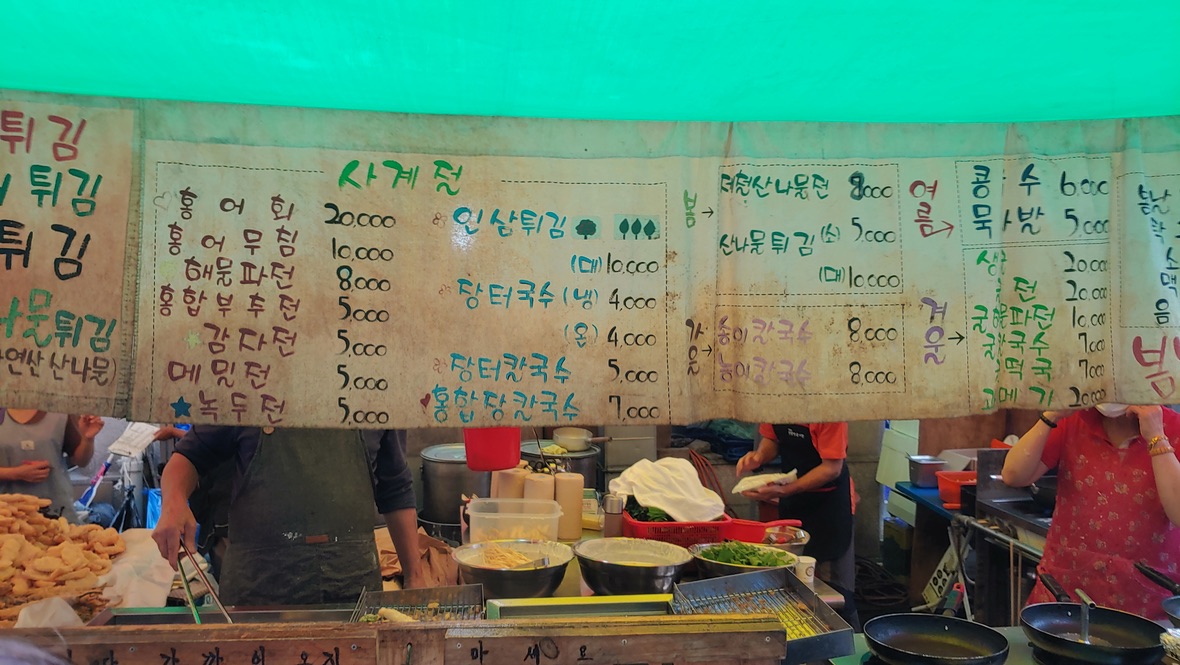 튀김
튀김
튀김
나물튀김
연산 산나물)
사계절
홍어회 20,000
홍어무침 10,000
해물파전 8,000
홍합부추전 5,000
감자전 5,000
메밀전 5,000
녹두전 5,000
인삼튀김
(대) 10,000
장터국수 (냉) 4,000
(온) 4,000
장터칼국수 5,000
홍합장칼국수 7,000
봄 →
산나물전 8,000
산나물튀김 (소) 5,000
(대) 10,000
가을 →
송이칼국수 8,000
능이칼국수 8,000
여름 →
콩 수 6,000
묵 사발 5,000
겨울 →
생 20,000
전 20,000
굴해물파전 10,000
굴 국수 7,000
굴떡국 7,000
20,000
소
맥
음
마세요